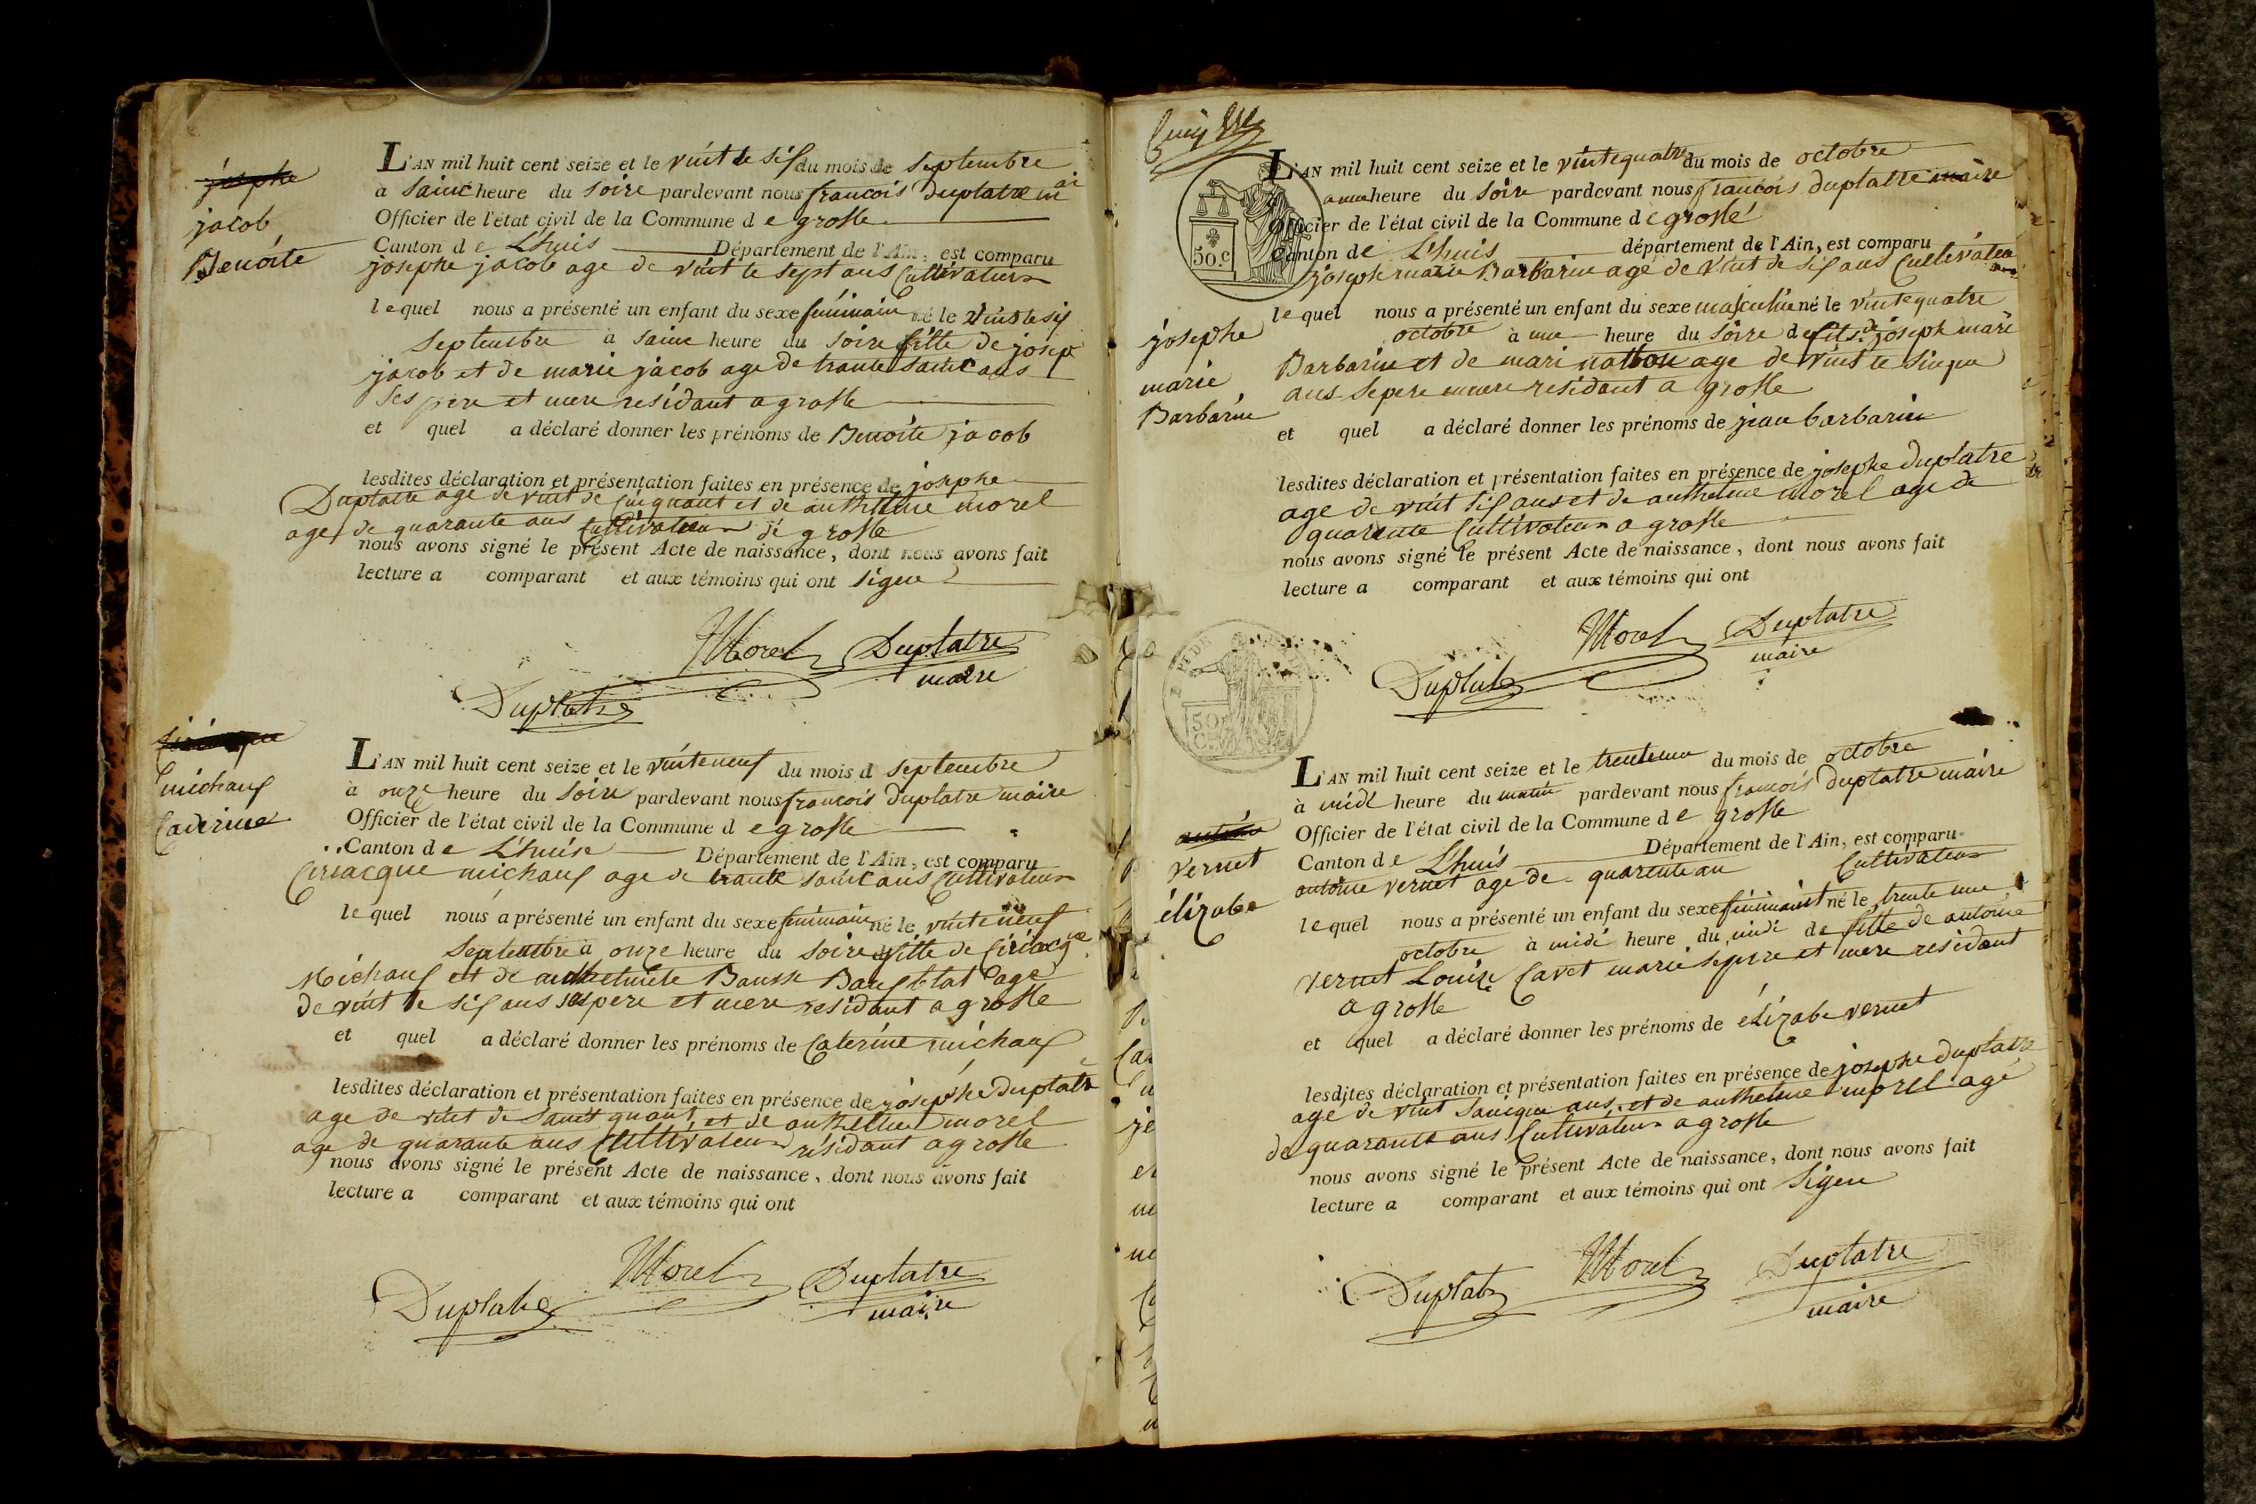 josephe
jacob
Benoite
L'AN mil huit cent seize et le vint te six du mois de septembre
à sainc heure du soire pardevant nous francois Duplatre mai
Officier de l'état civil de la Commune d e grosle
Canton d e L'huis Département de l'Ain, est comparu
josephe jacob age de vint te sept ans Cultivateur
le quel nous a présenté un enfant du sexe fuiminain né le vint te six
septembre à sainc heure du soire fille de josep
jacob et de marie jacob age de trante sainc ans
ses pere et mere residant a grosle
et quel a déclaré donner les prénoms de Benoite jacob
lesdites déclaration et présentation faites en présence de josephe
Duplatre age de vint de cinquant et de anthelme morel
age de quarante ans Cultivateur de grosle
nous avons signé le présent Acte de naissance, dont nous avons fait
lecture a comparant et aux témoins qui ont signe
Morel Duplatre
maire
Duplatre
michaux
Caterine
L'AN mil huit cent seize et le vinteneuf du mois d septembre
à onze heure du soire pardevant nous francois duplatre maire
Officier de l'état civil de la Commune d e grosle
Canton d e L'huise Département de l'Ain, est comparu
Ciriacque michaux age de trante sainc ans Cultivateur
le quel nous a présenté un enfant du sexe fuiminain né le vinteneuf
septembre à onze heure du soire fille de Ciriacque
Michaux et de anthelmete age
de vint te six ans ses pere et mere residant a grosle
et quel a déclaré donner les prénoms de Caterine michaux
lesdites déclaration et présentation faites en présence de josephe duplatre
age de vint de sainct quant et de anthelme morel
age de quarante ans Cultivateur résidant a grosle
nous avons signé le présent Acte de naissance, dont nous avons fait
lecture a comparant et aux témoins qui ont
Morel Duplatre
maire
Duplatre
50.c
L'AN mil huit cent seize et le vintequatre du mois de octobre
a une heure du soire pardevant nous francois duplatre maire
Officier de l'état civil de la Commune d e groslé
Canton de L'huis département de l'Ain, est comparu
joseph marie Barbarin age de vint de six ans Cultivateur
le quel nous a présenté un enfant du sexe masculin né le vintequatre
octobre à une heure du soire de fils de joseph marie
Barbarin et de mari nallon age de vint te sinque
ans se pere mere residant a grosle
et quel a déclaré donner les prénoms de jean barbarin
josephe
marie
Barbarin
lesdites déclaration et présentation faites en présence de josephe duplatre
age de vint six ans et de anthelme morel age de
quarante Cultivateur a grosle
nous avons signé le présent Acte de naissance, dont nous avons fait
lecture a comparant et aux témoins qui ont
Morel Duplatre
maire
Duplatre
50
C.
antoine
vernet
élizabe
L'AN mil huit cent seize et le trenteun du mois de octobre
à midi heure du matin pardevant nous francois duplatre maire
Officier de l'état civil de la Commune d e grosle
Canton d e L'huis Département de l'Ain, est comparu
antoine vernet age de quarente an Cultivateur
le quel nous a présenté un enfant du sexe fuiminaint né le trente une
octobre à midi heure du midi de fille de antoine
vernet Louize Cavet marie se pere et mere residant
a grosle
et quel a déclaré donner les prénoms de élizabe vernet
lesdites déclaration et présentation faites en présence de josephe duplatre
age de vint saincque ans et de anthelme morel age
de quarante ans Cultivateur a grosle
nous avons signé le présent Acte de naissance, dont nous avons fait
lecture a comparant et aux témoins qui ont signe
Duplatre Morel Duplatre
maire